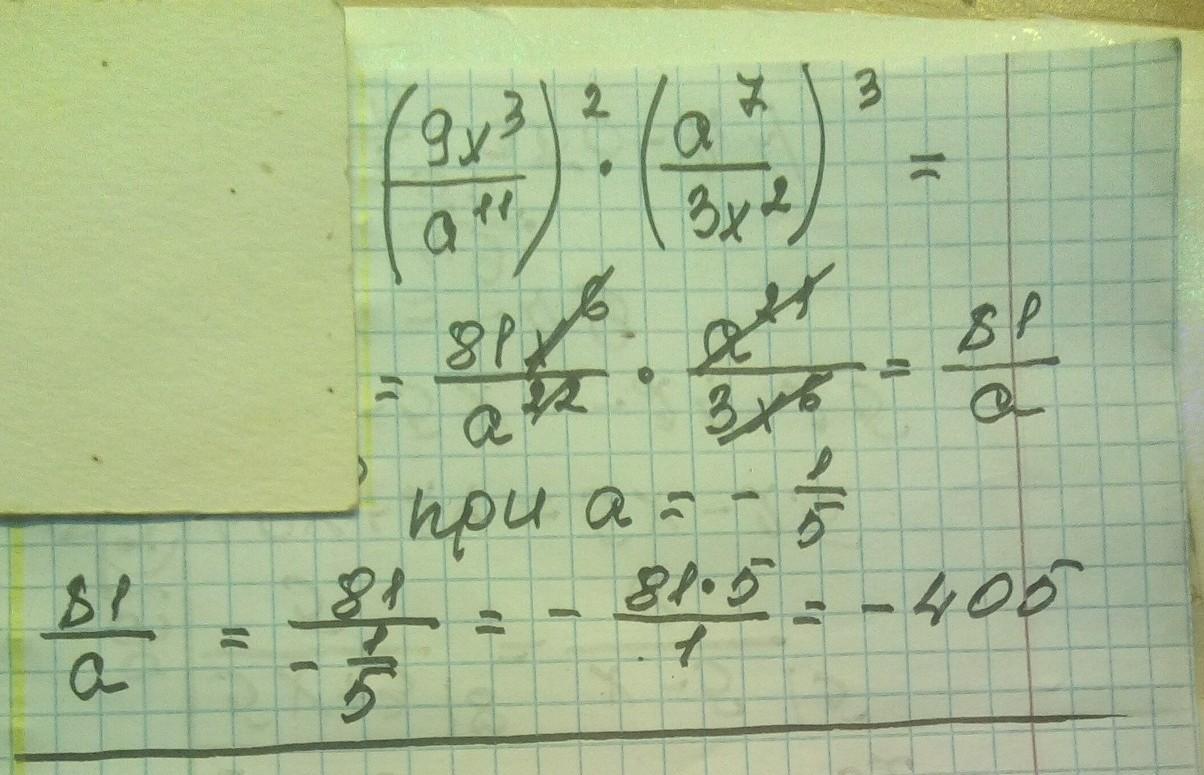 (9x³/a¹¹)² · (a⁷/3x²)³ =
= 81x⁶/a²² · a²¹/3x⁶ = 81/a
при a = - 1/5
81/a = 81/(- 1/5) = - 81·5/1 = - 405